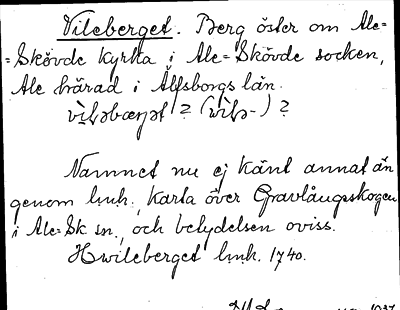 Vileberget. Berg öster om Ale=
=Skövde kyrka i Ale=Skövde socken,
Ale härad i Älfsborgs län.
? ( ) ?
Namnet nu ej känt annat än
genom lmh. karta över Gravlångeskogen
i Ale=Sk sn., och betydelsen oviss.
Hwileberget lmh. 1740.